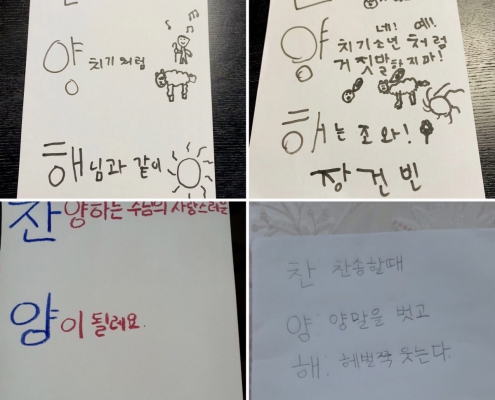 양치기처럼
해님과 같이
네! 예!
양치기소년 처럼
거짓말하지마!
해는 조와!
장건빈
찬양하는 주님의 사랑스러운
양이 될레요.
찬 찬송할때
양: 양말을 벗고
해: 헤벌쭉 웃는다.